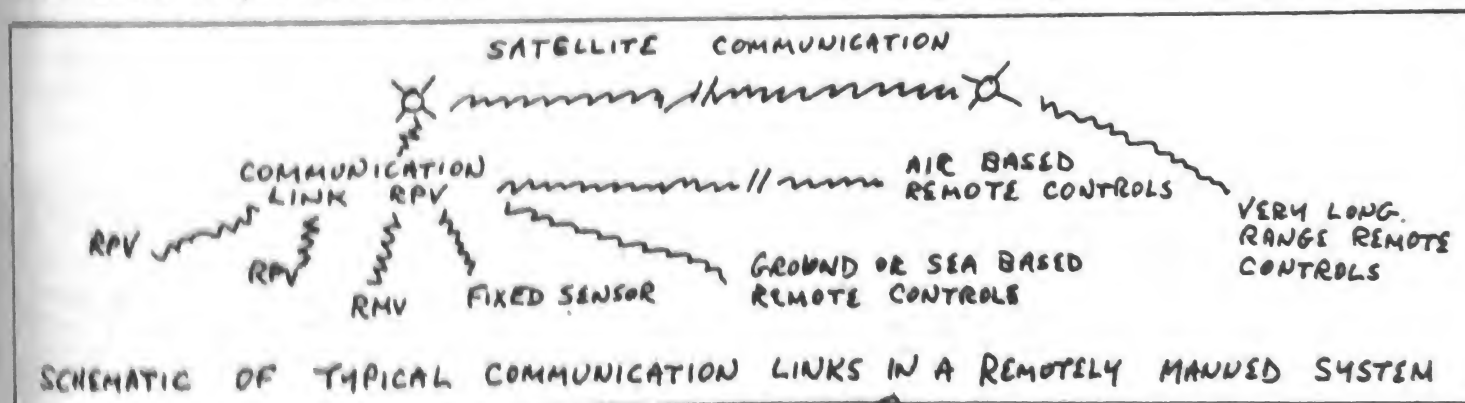 SATELLITE COMMUNICATION
COMMUNICATION
LINK RPV
AIR BASED
REMOTE CONTROLS
VERY LONG.
RANGE REMOTE
CONTROLS
RPV
RPV
RMV
FIXED SENSOR
GROUND OR SEA BASED
REMOTE CONTROLS
SCHEMATIC OF TYPICAL COMMUNICATION LINKS IN A REMOTELY MANNED SYSTEM